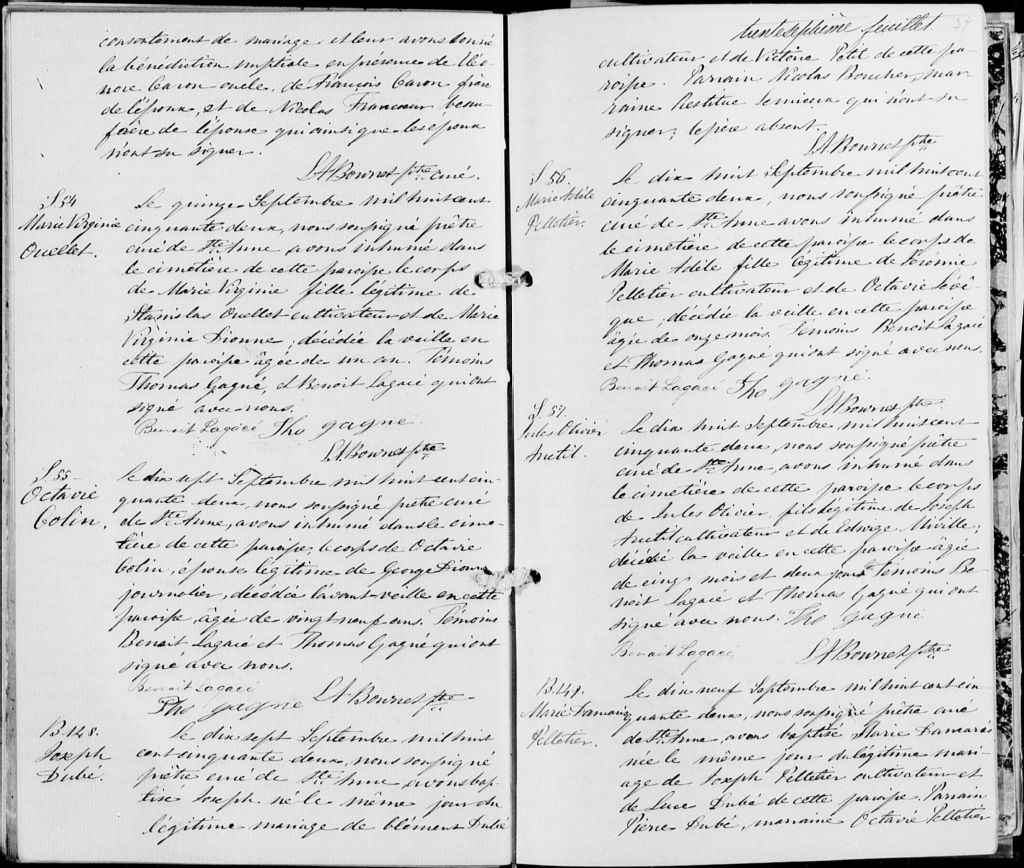 consentement de mariage et leur avons donné
la bénédiction nuptiale en présence de Eléo-
nore Caron oncle, de François Caron frère
de l'époux, et de Nicolas Francoeur beau-
frère de l'épouse qui ainsi que les époux
n'ont su signer.
Ptre curé.
S. 54
Marie Virginie
Ouellet.
Le quinze Septembre mil huit cent
cinquante deux, nous soussigné prêtre
curé de Ste. Anne avons inhumé dans
le cimetière de cette paroisse le corps
de Marie Virginie fille légitime de
Stanislas Ouellet cultivateur et de Marie
Virginie Dionne, décédée la veille en
cette paroisse âgée de un an. Témoins
Thomas Gagné, et Benoit Lagacé qui ont
signé avec nous.
Benoit Lagacé Tho gagné
Ptre
S. 55
Octavie
Colin.
Le dix sept Septembre mil huit cent cin-
quante deux, nous soussigné prêtre curé
de Ste. Anne, avons inhumé dans le cime-
tière de cette paroisse, le corps de Octavie
Colin, épouse légitime de George Dionne
journalier, décédée l'avant-veille en cette
paroisse, âgée de vingt neuf ans. Témoins
Benoit Lagacé et Thomas Gagné qui ont
signé avec nous.
Benoit Lagacé
Tho gagné Ptre
B. 148.
Joseph
Dubé.
Le dix sept Septembre mil huit
cent cinquante deux, nous soussigné
prêtre curé de Ste. Anne, avons bap-
tisé Joseph né le même jour du
légitime mariage de Clément Dubé
trente septième feuillet.
cultivateur et de Victoire Petit de cette pa-
roisse. Parrain Nicolas Boucher, mar-
raine Restitue Lemieux qui n'ont su
signer; le père absent.
Ptre
S. 56.
Marie Adèle
Pelletier.
Le dix huit Septembre mil huit cent
cinquante deux, nous soussigné prêtre
curé de Ste. Anne avons inhumé dans
le cimetière de cette paroisse le corps de
Marie Adèle fille légitime de Jérémie
Pelletier cultivateur et de Octavie Lévê-
que, décédée la veille en cette paroisse
âgée de onze mois. Témoins Benoit Lagacé
et Thomas Gagné qui ont signé avec nous.
Benoit Lagacé Tho gagné.
Ptre
S. 57.
Jules Olivier
Anctil.
Le dix huit Septembre mil huit cent
cinquante deux, nous soussigné prêtre
curé de Ste. Anne, avons inhumé dans
le cimetière de cette paroisse le corps
de Jules Olivier, fils légitime de Joseph
Anctil cultivateur et de Edwige Miville;
décédé la veille en cette paroisse âgé
de cinq mois et deux jours. Témoins Be-
noit Lagacé et Thomas Gagné qui ont
signé avec nous. Tho gagné
Benoit Lagacé
Ptre
B. 149.
Marie Damaris
Pelletier.
Le dix neuf Septembre mil huit cent cin-
quante deux, nous soussigné prêtre curé
de Ste. Anne, avons baptisé Marie Damaris
née le même jour du légitime mari-
age de Joseph Pelletier cultivateur et
de Luce Dubé de cette paroisse. Parrain
Pierre Dubé, marraine Octavie Pelletier